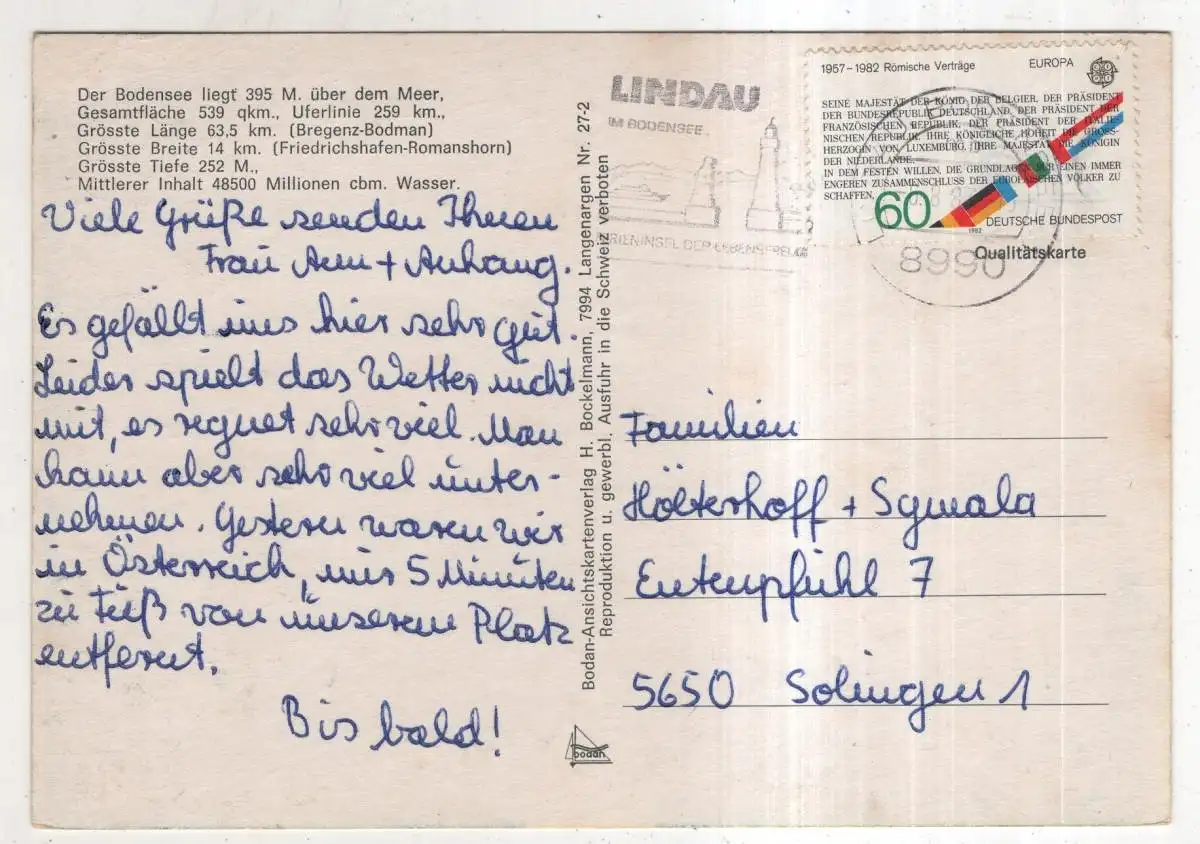 Der Bodensee liegt 395 M. über dem Meer,
Gesamtfläche 539 qkm., Uferlinie 259 km.,
Grösste Länge 63,5 km. (Bregenz-Bodman)
Grösste Breite 14 km. (Friedrichshafen-Romanshorn)
Grösste Tiefe 252 M.,
Mittlerer Inhalt 48500 Millionen cbm. Wasser.
Viele Grüße senden Ihnen
Frau Aum + Anhang.
Es gefällt uns hier sehr gut.
Leider spielt das Wetter nicht
mit, es regnet sehr viel. Man
kann aber sehr viel unter-
nehmen. Gestern waren wir
in Österreich, nur 5 Minuten
zu Fuß von unserem Platz
entfernt.
Bis bald!
Bodan-Ansichtskartenverlag H. Bockelmann, 7994 Langenargen Nr. 27-2
Reproduktion u. gewerbl. Ausfuhr in die Schweiz verboten
bodan
LINDAU
IM BODENSEE
FERIENINSEL DER LEBENSFREUDE
1957–1982 Römische Verträge EUROPA
SEINE MAJESTÄT DER KÖNIG DER BELGIER, DER PRÄSIDENT
DER BUNDESREPUBLIK DEUTSCHLAND, DER PRÄSIDENT DER
FRANZÖSISCHEN REPUBLIK, DER PRÄSIDENT DER ITALIE-
NISCHEN REPUBLIK, IHRE KÖNIGLICHE HOHEIT DIE GROSS-
HERZOGIN VON LUXEMBURG, IHRE MAJESTÄT DIE KÖNIGIN
DER NIEDERLANDE,
IN DEM FESTEN WILLEN, DIE GRUNDLAGEN FÜR EINEN IMMER
ENGEREN ZUSAMMENSCHLUSS DER EUROPÄISCHEN VÖLKER ZU
SCHAFFEN,
60 DEUTSCHE BUNDESPOST
1982
8990
Qualitätskarte
Familien
Hölterhoff + Sgmala
Entenpfühl 7
5650 Solingen 1